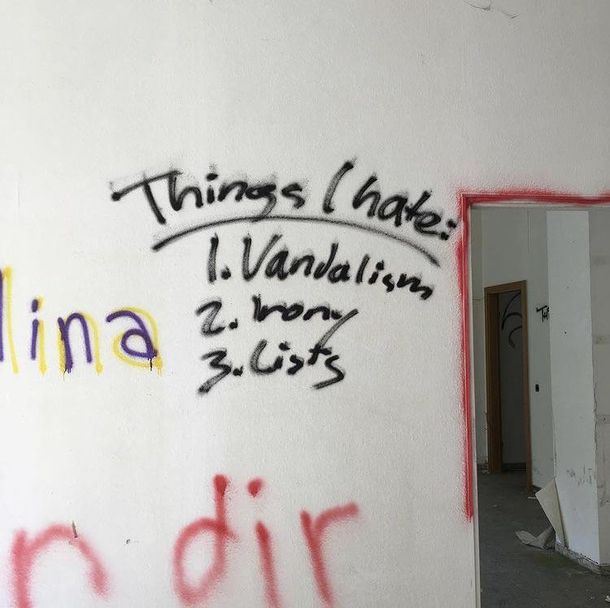 Things I hate:
1. Vandalism
2. Irony
3. Lists
lina
r dir